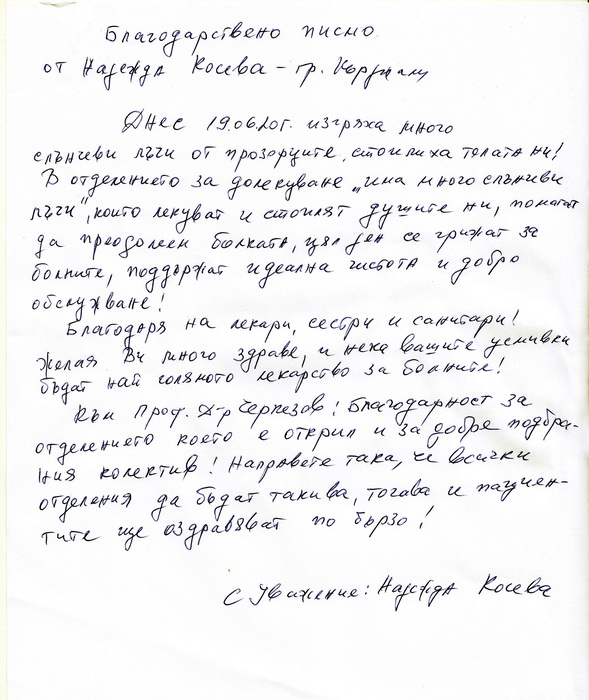 Благодарствено писмо
от Надежда Косева – гр. Кърджали
Днес 19.06.20г. изгряха много
слънчеви лъчи от прозорците, стоплиха телата ни!
В отделението за долекуване „има много слънчеви
лъчи", които лекуват и стоплят душите ни, помагат
да преодолеем болката, цял ден се грижат за
болните, поддържат идеална чистота и добро
обслужване!
Благодаря на лекари, сестри и санитари!
Желая Ви много здраве, и нека вашите усмивки
бъдат най голямото лекарство за болните!
Към Проф. Д-р Черкезов! Благодарност за
отделението което е открил и за добре подбра-
ния колектив! Направете така, че всички
отделения да бъдат такива, тогава и пациен-
тите ще оздравяват по бързо!
С Уважение: Надежда Косева